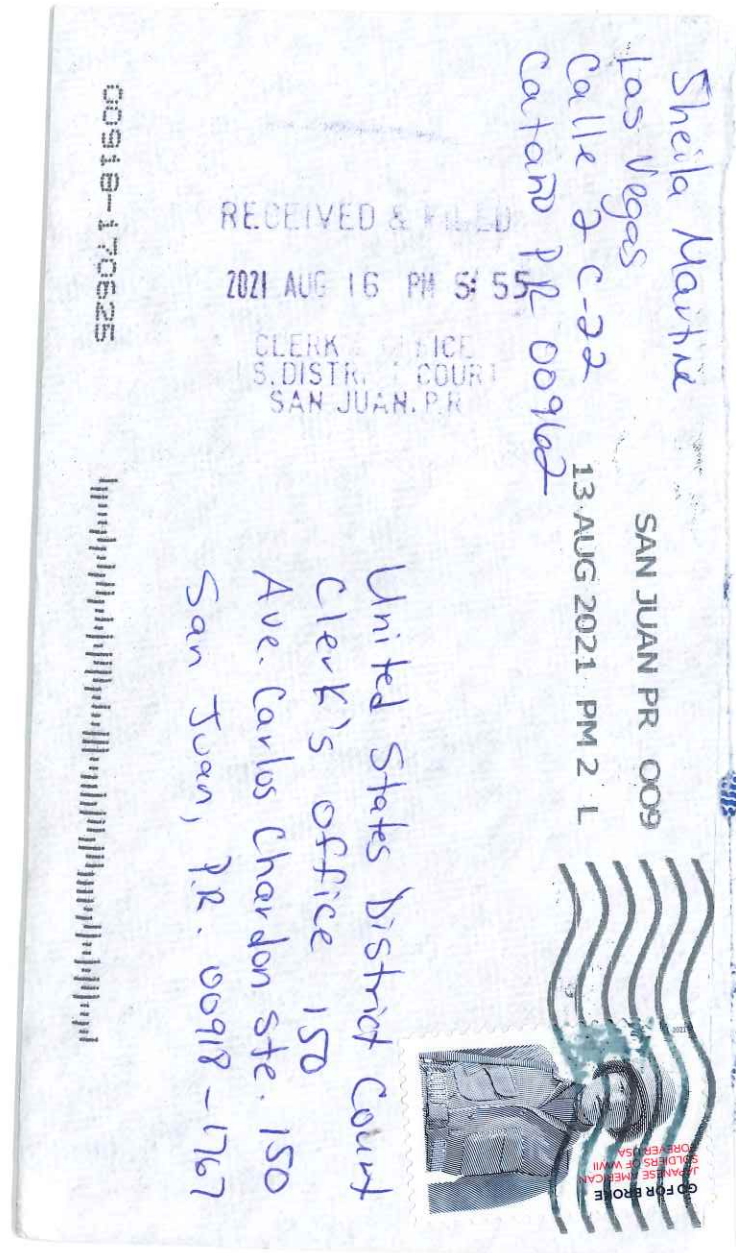 Sheila Martine
Las Vegas
Calle 2 C-22
Cataño P.R. 00962
SAN JUAN PR 009
13 AUG 2021 PM 2 L
GO FOR BROKE
JAPANESE AMERICAN
SOLDIERS OF WWII
FOREVER USA
RECEIVED & FILED
2021 AUG 16 PM 5: 55
CLERK'S OFFICE
U.S. DISTRICT COURT
SAN JUAN, P.R
United States District Court
Clerk's office 150
Ave. Carlos Chardon ste. 150
San Juan, P.R. 00918-1767
00918-170625